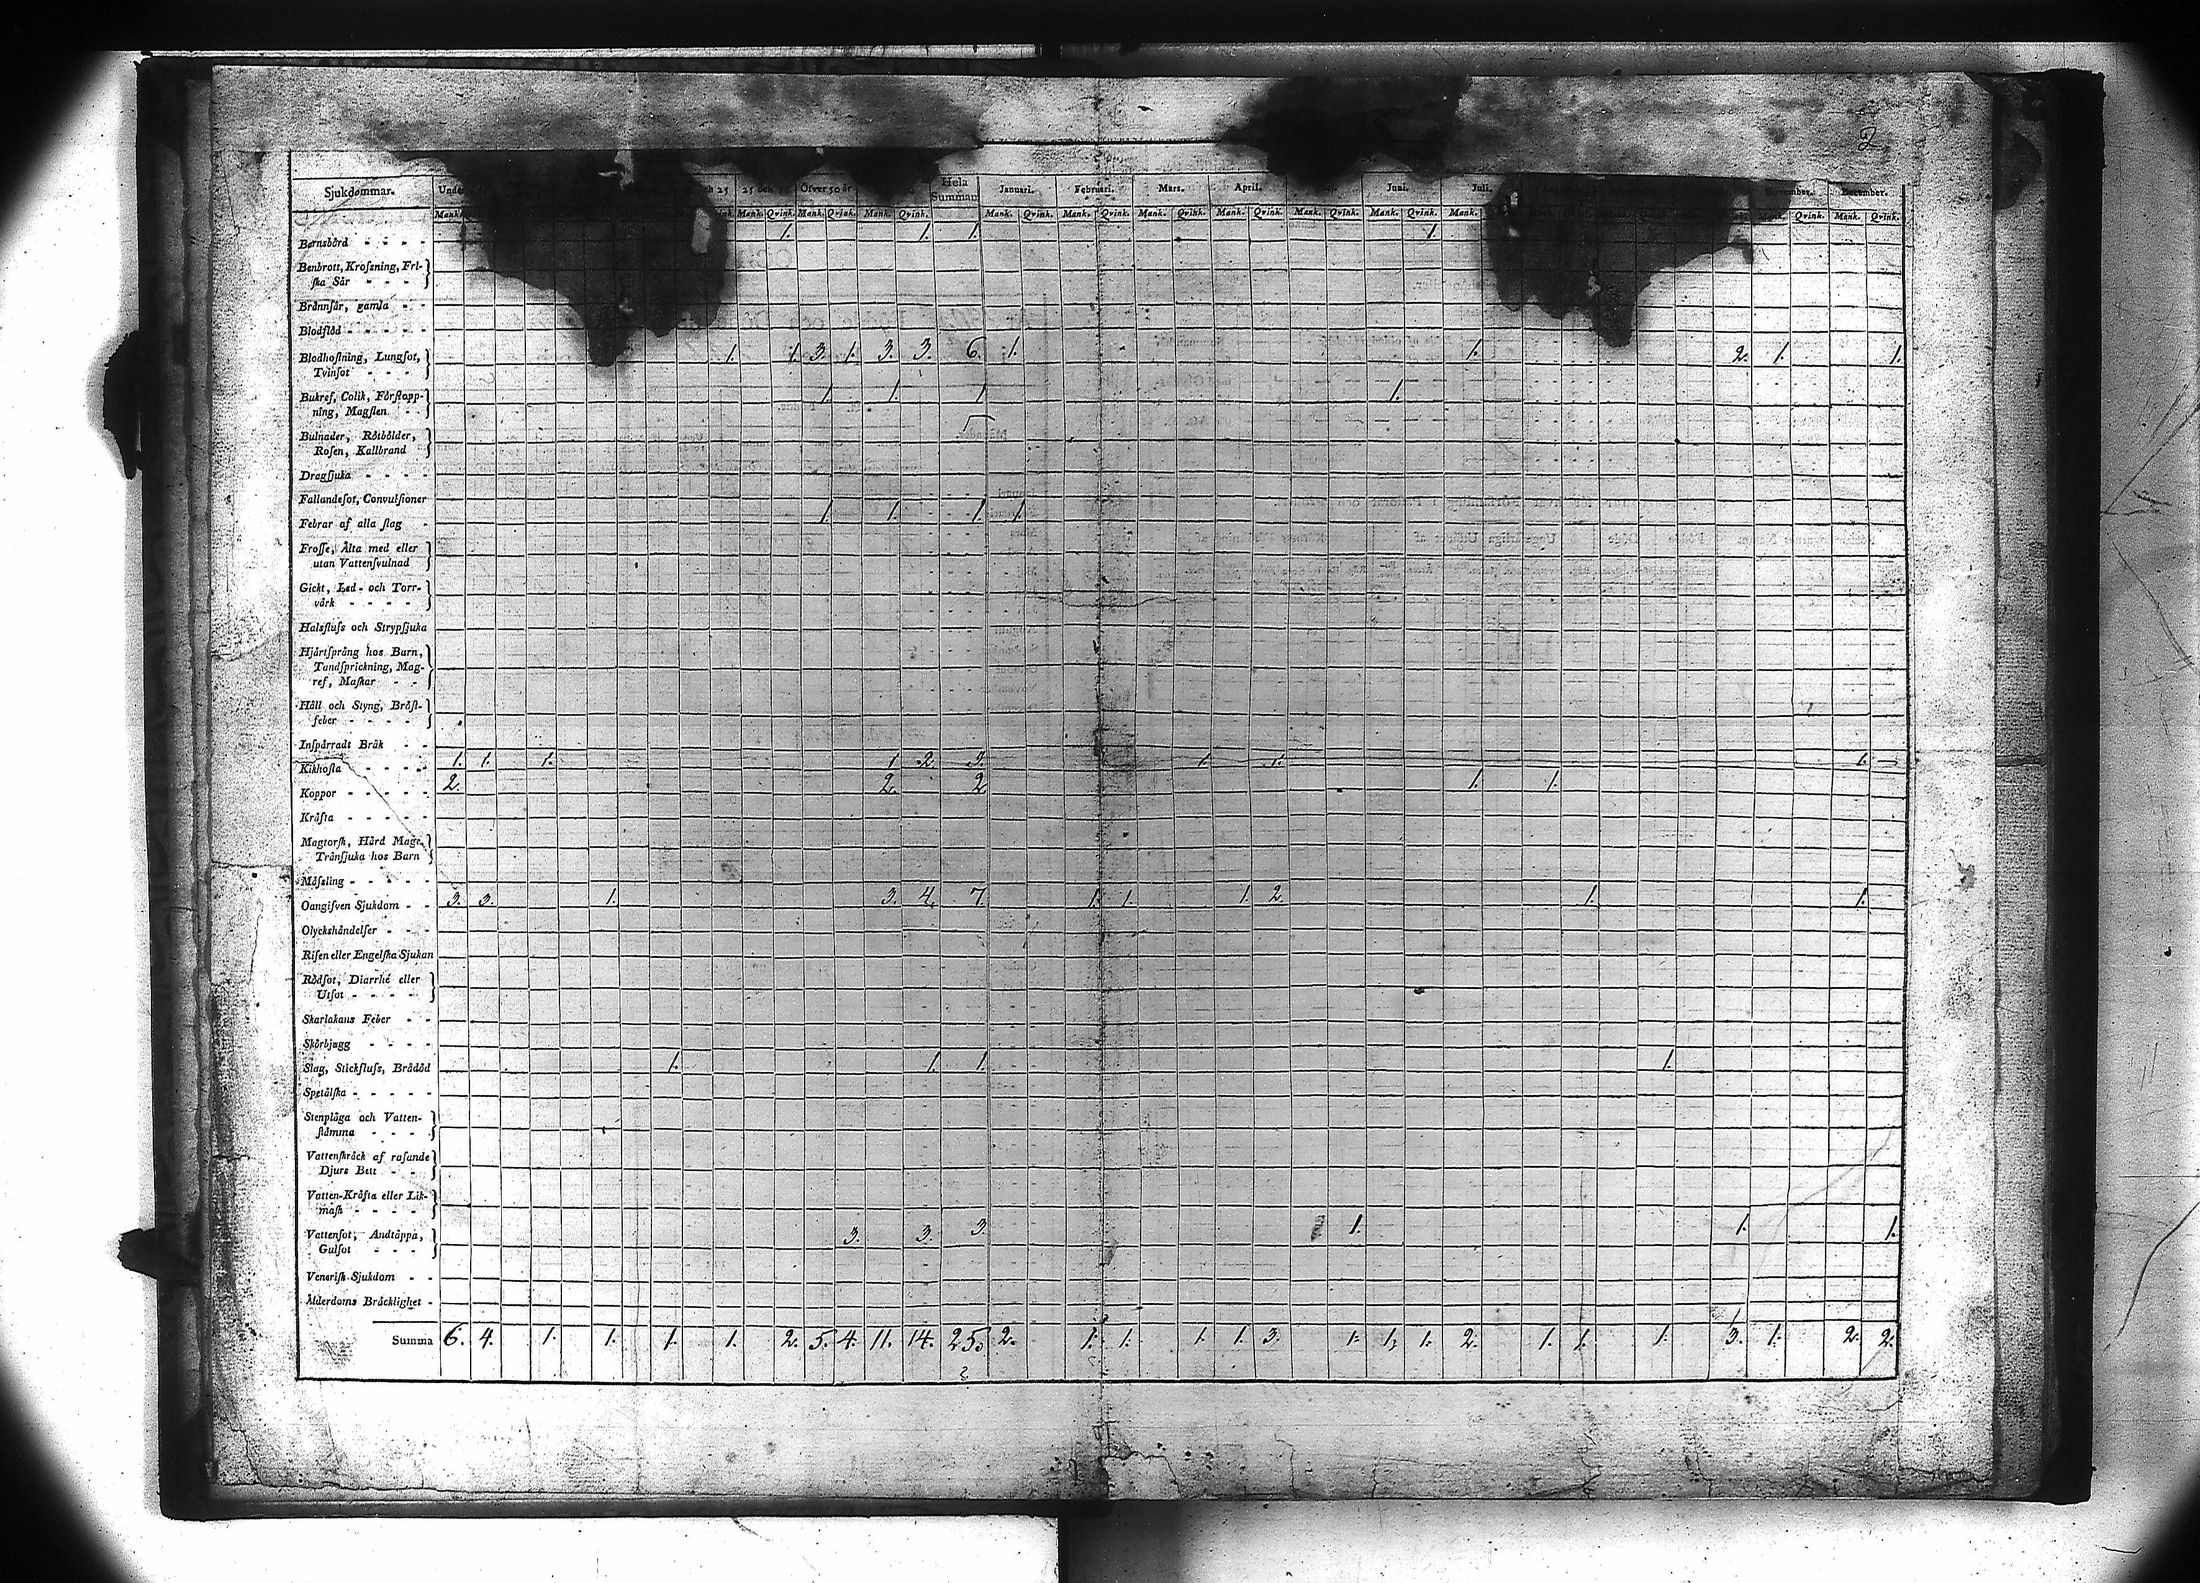 2
Sjukdommar. Under ch 25 25 och Öfver 50 år Hela Summan Januari. Februari. Mars. April. Juni. Juli. November. December.
Mank. Qvink. Mank. Qvink. Mank. Qvink. Mank. Qvink. Mank. Qvink. Mank. Qvink. Mank. Qvink. Mank. Qvink. Mank. Qvink. Mank. Qvink. Mank. Mank. Qvink. Mank. Qvink.
Barnsbörd - - - - 1. 1. 1. 1.
Benbrott, Krosſning, Fri-
ſka Sår - - - -
Brännſår, gamla - -
Blodflöd - - - - -
Blodhoſtning, Lungſot, 1. 1. 3. 1. 3. 3. 6. 1. 1. 2. 1. 1.
Tvinſot - - -
Bukref, Colik, Förſtopp- 1. 1. 1 1.
ning, Magſten. - -
Bulnader, Rötbölder,
Roſen, Kallbrand
Dragſjuka - - - -
Fallandeſot, Convulſioner
Febrar af alla ſlag - 1. 1. 1. 1.
Froſſe, Älta med eller
utan Vattenſvulnad
Gickt, Led- och Torr-
värk - - - -
Halsfluſs och Strypſjuka
Hjärtſprång hos Barn,
Tandſprickning, Mag-
ref, Maſkar - -
Håll och Styng, Bröſt-
feber - - - -
Inſpärradt Bråk - -
Kikhoſta - - - - 1. 1. 1. 1 2. 3. 1. 1. 1.
Koppor - - - - - 2. 2. 2 1. 1.
Kräfta - - - - -
Magtorſk, Hård Mage,
Tränſjuka hos Barn
Mäſsling - - - - -
Oangifven Sjukdom - - 3. 3. 1. 3. 4. 7. 1. 1. 1. 2. 1. 1.
Olyckshändelſer - - -
Riſen eller Engelſka Sjukan
Rödſot, Diarrhé eller
Utſot - - - -
Skarlakans Feber - -
Skörbjugg - - - -
Slag, Stickfluſs, Brådöd 1. 1. 1. 1.
Spetälſka - - - - -
Stenplåga och Vatten-
ſtämma - - - -
Vattenſkräck af raſande
Djurs Bett - -
Vatten-Kräfta eller Lik-
maſk - - - -
Vattenſot, Andtäppa, 3. 3. 3. 1. 1. 1.
Gulſot - - -
Veneriſk Sjukdom - -
Ålderdoms Bräcklighet -
Summa 6. 4. 1. 1. 1. 1. 2. 5. 4. 11. 14. 25. 2. 1. 1. 1. 1. 3. 1. 1. 1. 2. 1. 1. 1. 3. 1. 2. 2.